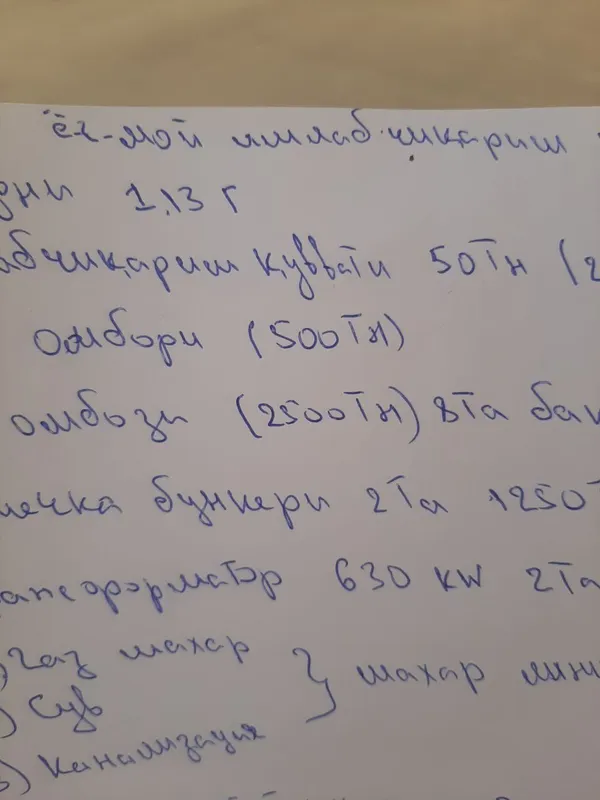 ёг-мой ишлаб чиқариш
дни 1,13 г
абчиқариш қуввати 50Тн (2
омбори (500Тн)
омбози (2500Тн) 8Та бак
лечка бункери 2Та 1250Т
рансформатор 630 KW 2Та
) газ шахар
) Сув } шахар лини
) Канализация